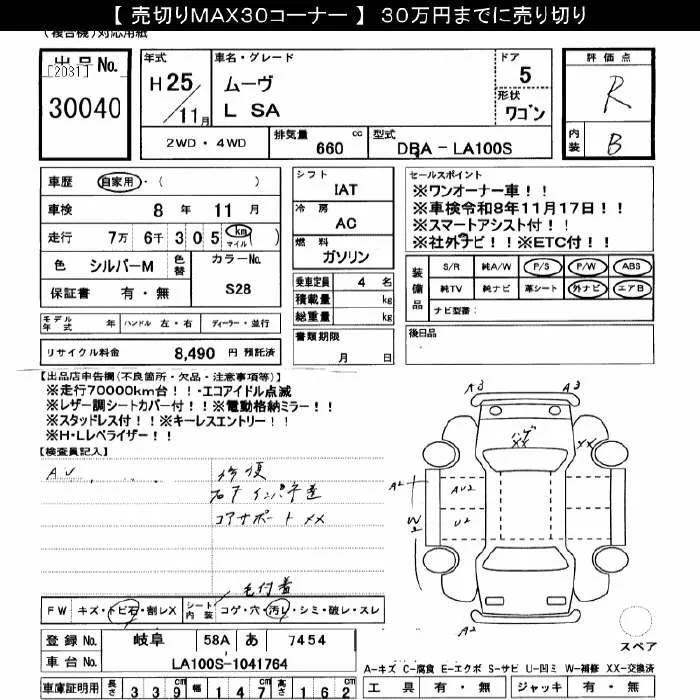 【 売切りMAX30コーナー 】 30万円までに売り切り
(複合機)対応用紙
出品No.
[2031]
30040
年式
H 25
/ 11 月
車名・グレード
ムーヴ
L SA
ドア
5
形状
ワゴン
評価点
R
内装
B
2WD ・ 4WD
排気量
660
cc
型式
DBA - LA100S
車歴 自家用・( )
車検 8 年 11 月
走行 7万 6千 3 0 5 km マイル ( )
色 シルバーM
色替
カラーNo.
S28
保証書 有・無
シフト
IAT
冷房
AC
燃料
ガソリン
乗車定員 4 名
積載量 kg
総重量 kg
書類期限
月 日
セールスポイント
※ワンオーナー車!!
※車検令和8年11月17日!!
※スマートアシスト付!!
※社外ナビ!!※ETC付!!
装備品
S/R 純A/W P/S P/W ABS
純TV 純ナビ 革シート 外ナビ エアB
ナビ型番:
モデル年式 年 ハンドル 左・右 ディーラー・並行
リサイクル料金 8,490 円 預託済
後日品
【出品店申告欄(不良箇所・欠品・注意事項等)】
※走行70000km台!!・エコアイドル点滅
※レザー調シートカバー付!!※電動格納ミラー!!
※スタッドレス付!!※キーレスエントリー!!
※H・Lレベライザー!!
【検査員記入】
AU
修復
右Fインパネ
コアサポート XX
A3
A3
ハゲ
XX
XX
A2
AU2
W2
U2
A2
毛付着
FW キズ・トビ石・割レX
シート内装 コゲ・穴・汚レ・シミ・破レ・スレ
登録No. 岐阜 58A あ 7454
車台No. LA100S-1041764
スペア
A-キズ C-腐食 E-エクボ S-サビ U-凹ミ W-補修 XX-交換済
車庫証明用 長さ 3 3 9 幅 1 4 7 高さ 1 6 2
工具 有・無 ジャッキ 有・無